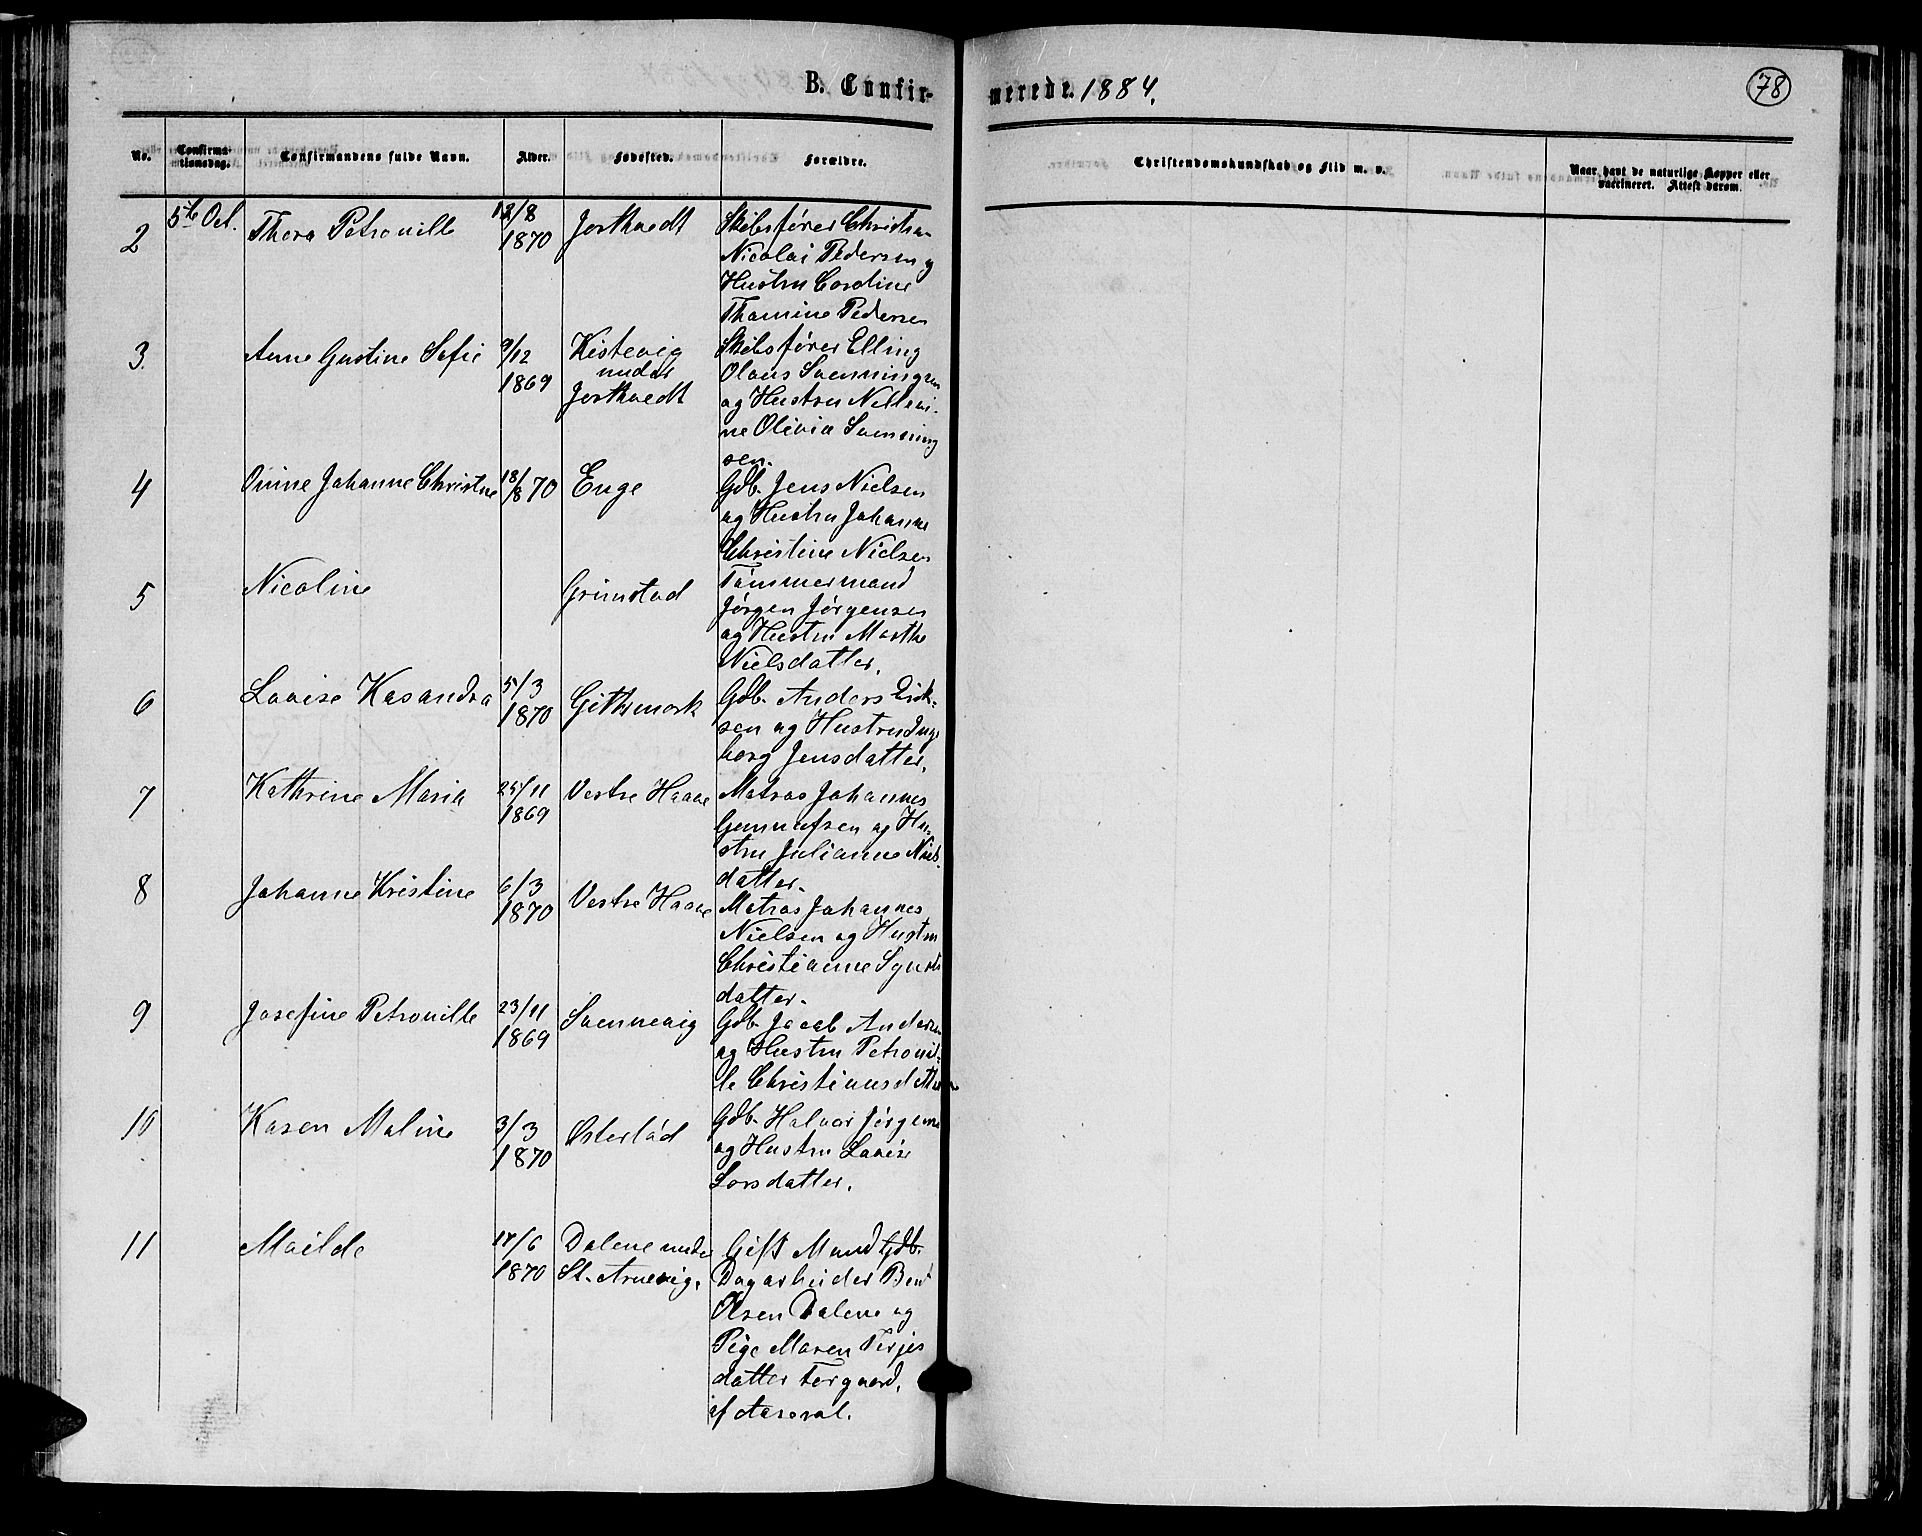 B. Confir-
merede. 1884.
78
No.
Confirma-
tionsdag.
Confirmandens fulde Navn.
Alder.
Fødested.
Forældre.
Christendomskundskab og Flid m. v.
Naar havt de naturlige Kopper eller
vaccineret. Attest derom.
2
5te Oct.
Thora Petronille
12/8
1870
Jortveedt
Skibsfører Christian
Nicolai Pedersen og
Hustru Cordine
Thomine Pedersen
3.
Anne Gustine Sofie
9/12
1869
Kistevig
under
Jortveedt
Skibsfører Elling
Olaus Svenningsen
og Hustru Nellevi-
ne Olivia Svenning
sen.
4
Onine Johanne Christine
18/8 70
Enge
Gdb. Jens Nielsen
og Hustru Johanne
Christine Nielsen
5
Nicoline
Grimstad
Tømmermand
Jørgen Jørgensen
og Hustru Marthe
Nielsdatter.
6
Lovise Kasandra
5/3
1870
Githmark
Gdb. Anders Erik-
sen og Hustru Inge
borg Jensdatter.
7
Kathrine Maria
25/11
1869
Vestre Haave
Matros Johannes
Gunnufsen og Hu-
stru Julianne Niels-
datter.
8
Johanne Kristine
6/3
1870
Vestre Haave
Matros Johannes
Nielsen og Hustru
Christianne
datter.
9
Josefine Petronille
23/11
1869
Svennevig
Gdb. Jacob Andersen
og Hustru Petronil-
le Christiansdatter
10
Karen Maline
3/3
1870
Østerlád
Gdb. Halvor Jørgensen
og Hustru Lovise
Larsdatter.
11
Mailde
17/6
1870
Dalene under
St. Arnevig.
Gift Mand Gdb.
Dagarbeider Bent
Olsen Dalene og
Pige Maren Terjes
datter Torgaard,
af Aaseral.